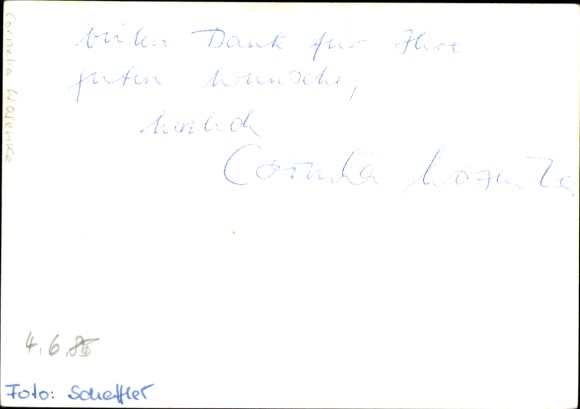 vielen Dank für Ihre
guten Wünsche,
herzlich
Cornelia Wosnitza
4.6.85
Foto: Scheffler
Cornelia